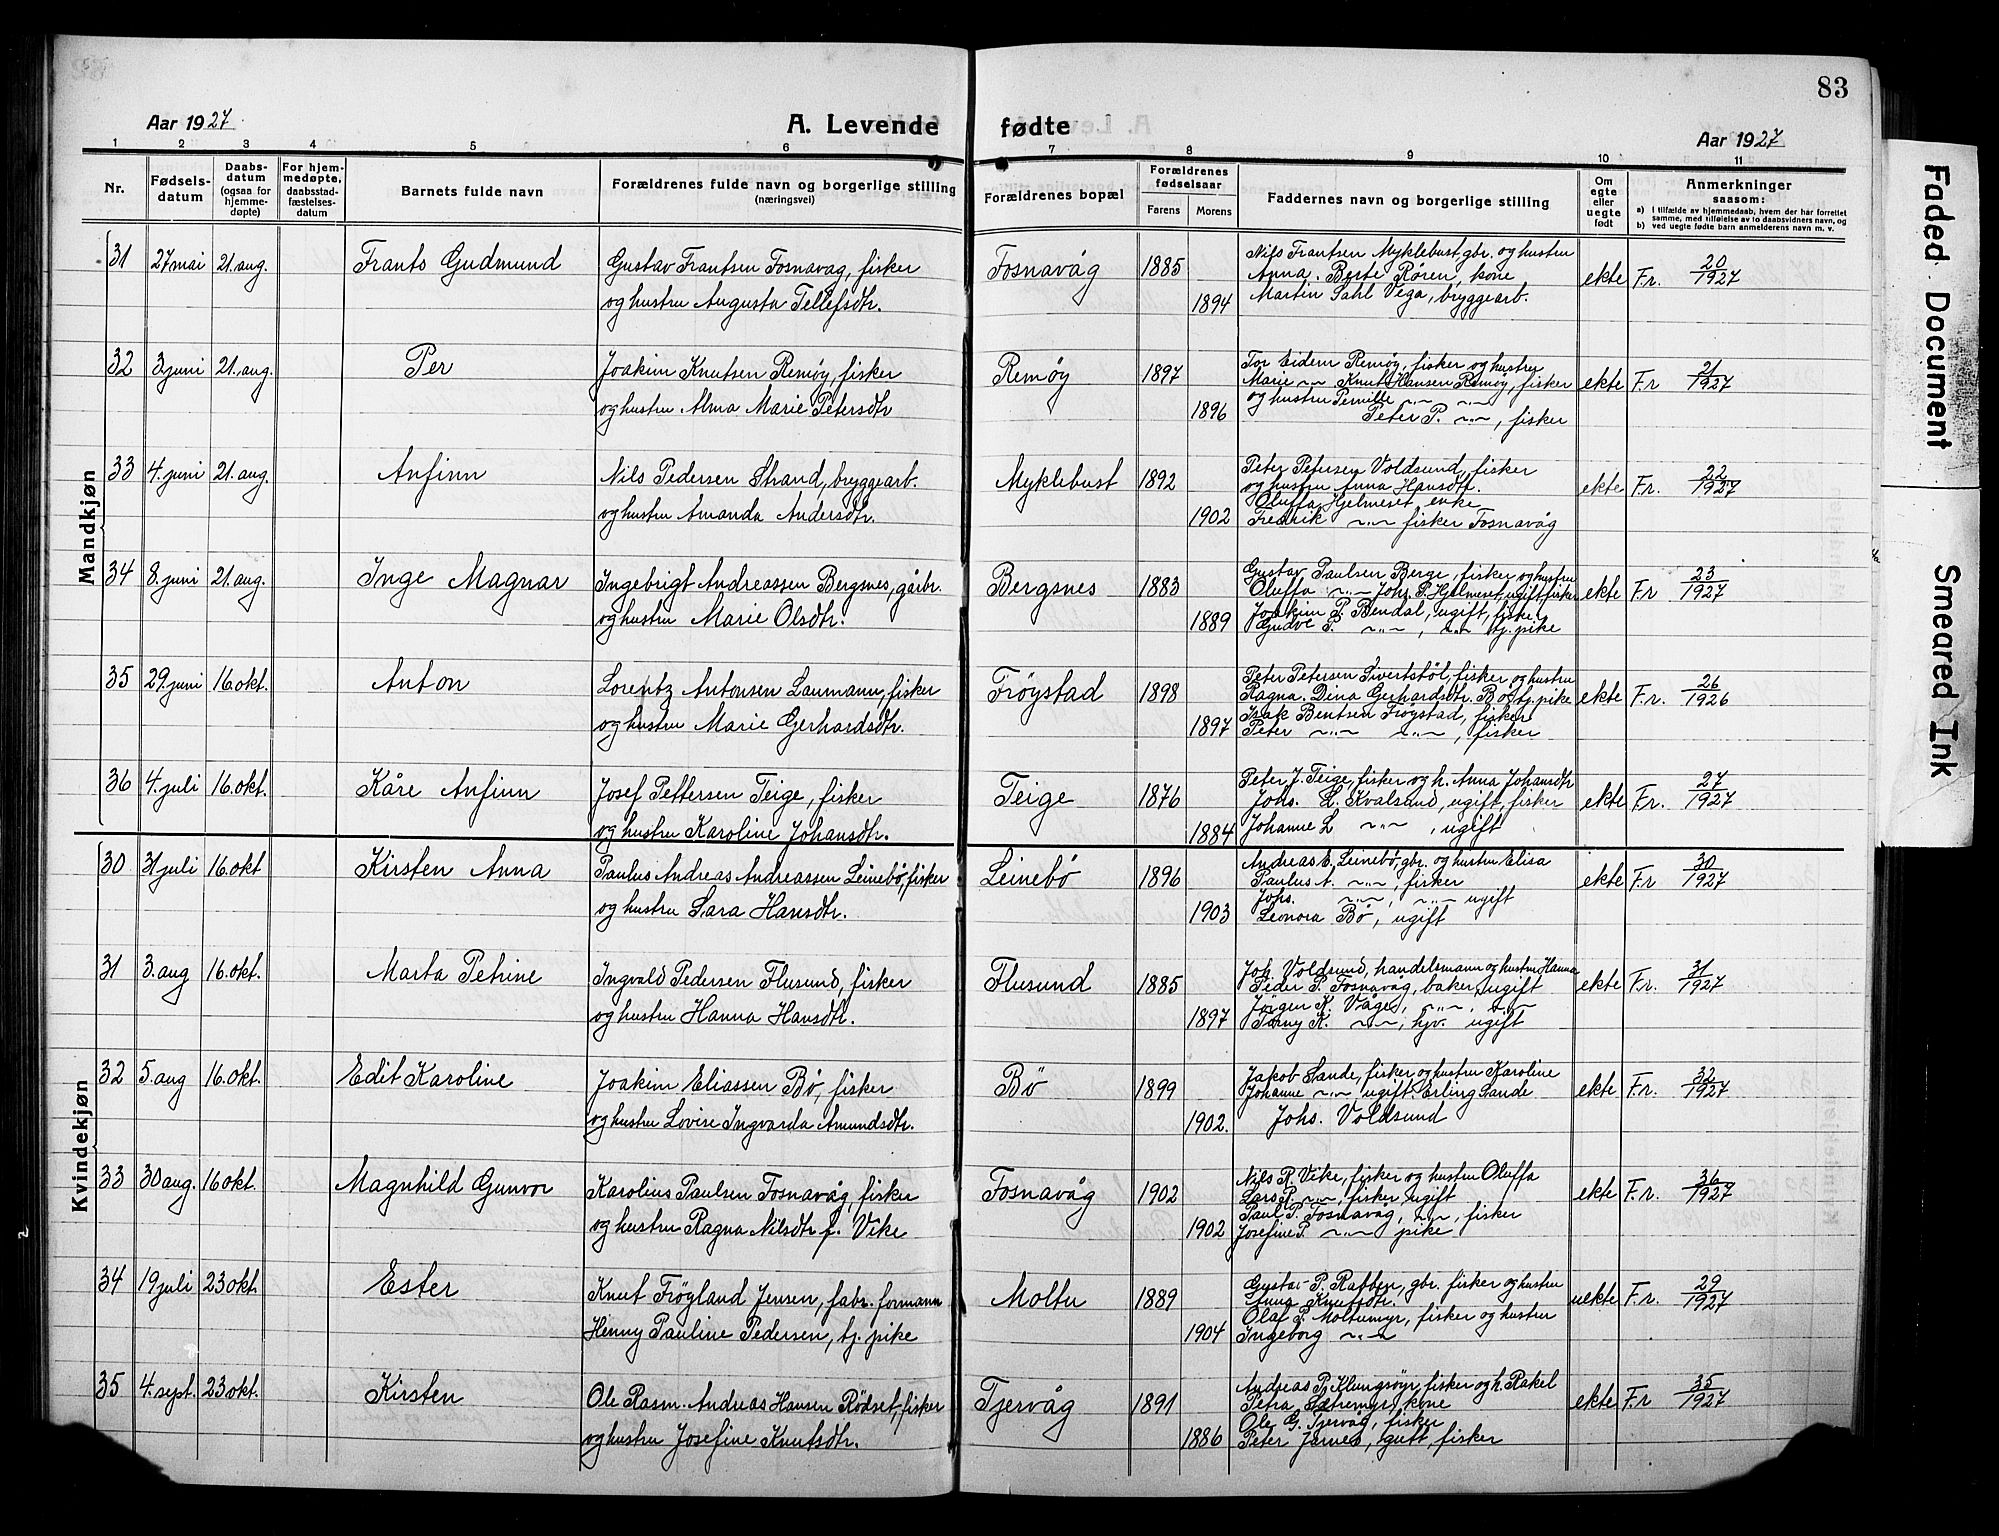 83
Aar 1927 A. Levende fødte Aar 1927
1 2 3 4 5 6 7 8 9 10 11
Nr. Fødsels-datum Daabs-datum (ogsaa for hjemme-døpte) For hjem-medøpte, daabsstad-fæstelses-datum Barnets fulde navn Forældrenes fulde navn og borgerlige stilling (næringsvei) Forældrenes bopæl Forældrenes fødselsaar Farens Morens Faddernes navn og borgerlige stilling Om egte eller uegte født Anmerkninger saasom:
a) I tilfælde av hjemmedaab, hvem der har forrettet samme, med tilføielse av to daabsvidners navn, og
b) ved uegte fødte barn anmelderens navn m. v.
Mandkjøn
31 27 mai 21. aug. Frants Gudmund Gustav Frantsen Fosnavag, fisker Fosnavåg 1885 Nils Frantsen Myklebust, gbr. og hustru
Anna. Berte Røren, kone ekte F.r. 20/1927
og hustru Augusta Tellefsdtr. 1894 Martin Sahl Vega, bryggearb.
32 3. juni 21. aug. Per Joakim Knutsen Remøy, fisker Remøy 1897 Tor Eidem Remøy, fisker og hustru
Marie -"- Knut Hansen Remøy, fisker ekte F.r 21/1927
og hustru Pernille -"- -"-
og hustru Alma Marie Petersdtr 1896 Peter P. -"-, fisker
33 4. juni 21. aug. Anfinn Nils Pedersen Strand, bryggearb. Myklebust 1892 Peter Petersen Voldsund, fisker
og hustru Anna Hansdtr. ekte F.r. 22/1927
Oluffa Hjelmeset enke
og hustru Amanda Andersdtr. 1902 Fredrik -"- fisker Fosnavåg
34 8. juni 21. aug. Inge Magnar Ingebrigt Andreassen Bergsnes, gårbr. Bergsnes 1883 Gustav Paulsen Berge, fisker og hustru
Oluffa -"- Joh. P. Hjelmeset, ugift fisker ekte F.r 23/1927
og hustru Marie Olsdtr. 1889 Joakim P. Bendal, ugift, fisker
P. -"-, -"- tj. pike
35 29. juni 16. okt. Anton Lorentz Antonsen Laumann, fisker Frøystad 1898 Peter Petersen Sivertstøl, fisker og hustru
Ragna. Dina Gerhardsdtr. Bø tj. pike ekte F.r. 26/1926
og hustru Marie Gerhardsdtr. 1897 Isak Bentsen Frøystad, fisker
Peter -"- -"-, fisker
36 4. juli 16. okt. Kåre Anfinn Josef Pettersen Teige, fisker Teige 1876 Peter J. Teige, fisker og h. Anna Johansdtr
Johs. L. Kvalsund, ugift, fisker ekte F.r. 27/1927
og hustru Karoline Johansdtr. 1884 Johanne L -"-, ugift
Kvindekjøn
30 31 juli 16. okt Kirsten Anna Paulus Andreas Andreassen Leinebø, fisker Leinebø 1896 Andreas E. Leinebø, gbr. og hustru Elisa
Paulus A. -"-, fisker ekte F.r 30/1927
Johs. -"-, -"- ugift
og hustru Sara Hansdtr. 1903 Leonora Bø, ugift
31 3. aug 16. okt. Marta Petrine Ingvald Pedersen Flusund, fisker Flusund 1885 Joh. Voldsund, handelsmann og hustru Hanna
Peder P. Fosnavåg, baker, ugift ekte F.r. 31/1927
Jørgen K. Våge, -"-, -"-
og hustru Hanna Hansdtr. 1897 K. -"-, hjv. ugift
32 5. aug 16. okt. Edit Karoline Joakim Eliassen Bø, fisker Bø 1899 Jakob Sande, fisker og hustru Karoline
Johanne -"- ugift. Erling Sande ekte F.r. 32/1927
og hustru Lovise Ingvarda Amundsdtr. 1902. Johs. Voldsund
33 30 aug. 16 okt. Magnhild Gunvor Karolius Paulsen Fosnavåg, fisker Fosnavåg 1902 Nils R. Vike, fisker og hustru Oluffa
Lars P. -"-, fisker, ugift ekte F.r. 36/1927
Paul P. Fosnavåg, -"-, fisker
og hustru Ragna Nilsdtr f. Vike 1902 Josefine P. -"- pike
34 19 juli 23 okt Ester Knut Frøyland Jensen, fabr. formann Moltu 1889 Gustav P. Rabben, gbr. fisker og hustru
Anna Knutsdtr. uekte F.r. 29/1927
Olaf P. Moltumyr, fisker og hustru
Henny Pauline Pedersen, tj. pike 1904 Ingeborg -"-
35 4. sept. 23 okt. Kirsten Ole Rasm. Andreas Hansen Rödset, fisker Tjervåg 1891 Andreas P. Klungsöyr, fisker og h. Rakel
Petra Sætremyr, kone ekte F.r 35/1927
Ole G. Tjervåg, fisker
og hustru Josefine Knutsdtr. 1886 Peter Jarnes, gutt, fisker
Faded Document
Smeared Ink